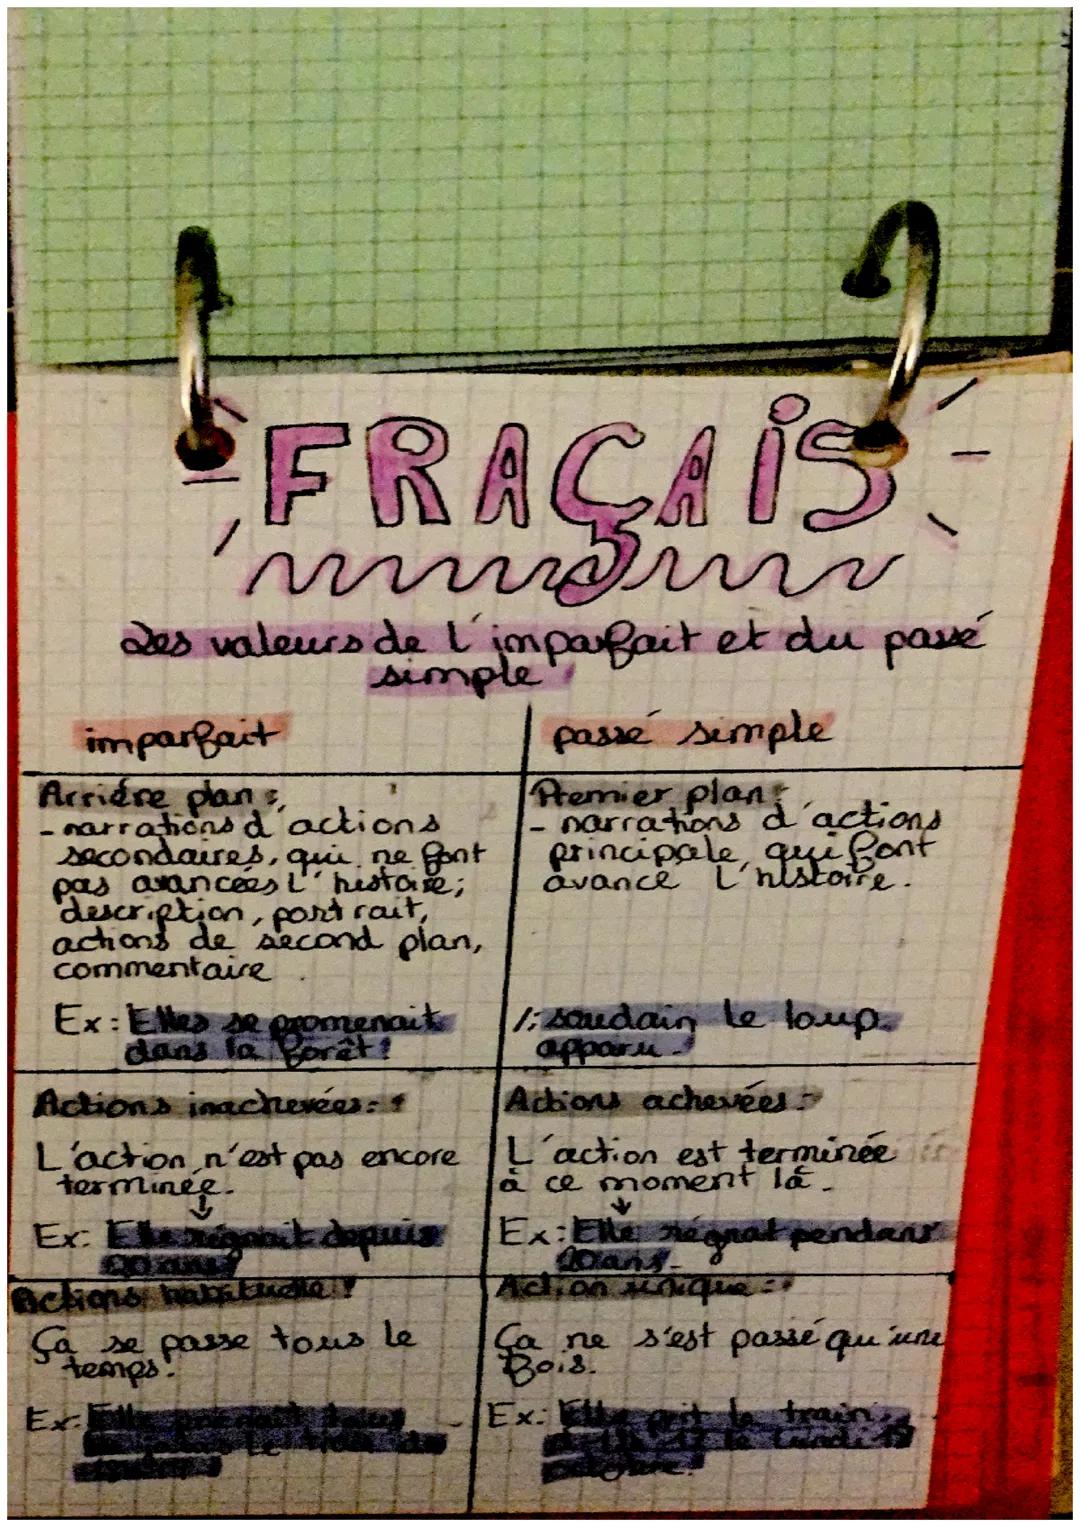 FRAÇAIS
Les valeurs de l'imparfait et du passé
simple
imparfait
passé simple
Arriére plan :
- narrations d'actions
secondaires, qui ne font
pas avancées l'histoire;
description, portrait,
actions de second plan,
commentaire
Ex : Elles se promenait
dans la forêt!
Premier plan :
- narrations d'actions
principale, qui font
avance l'histoire.
soudain le loup
apparu.
Actions inachevées :
L'action n'est pas encore
terminée.
Ex: Elle régnait depuis
20 ans
Actions achevées :
L'action est terminée
à ce moment là.
Ex : Elle régnat pendans
20 ans.
Actions habituelle
Ça se passe tous le
temps.
Ex: Elle prenait tous
le train de
Action unique :
Ça ne s'est passé qu'une
fois.
Ex: Elle prit le train
le lundi